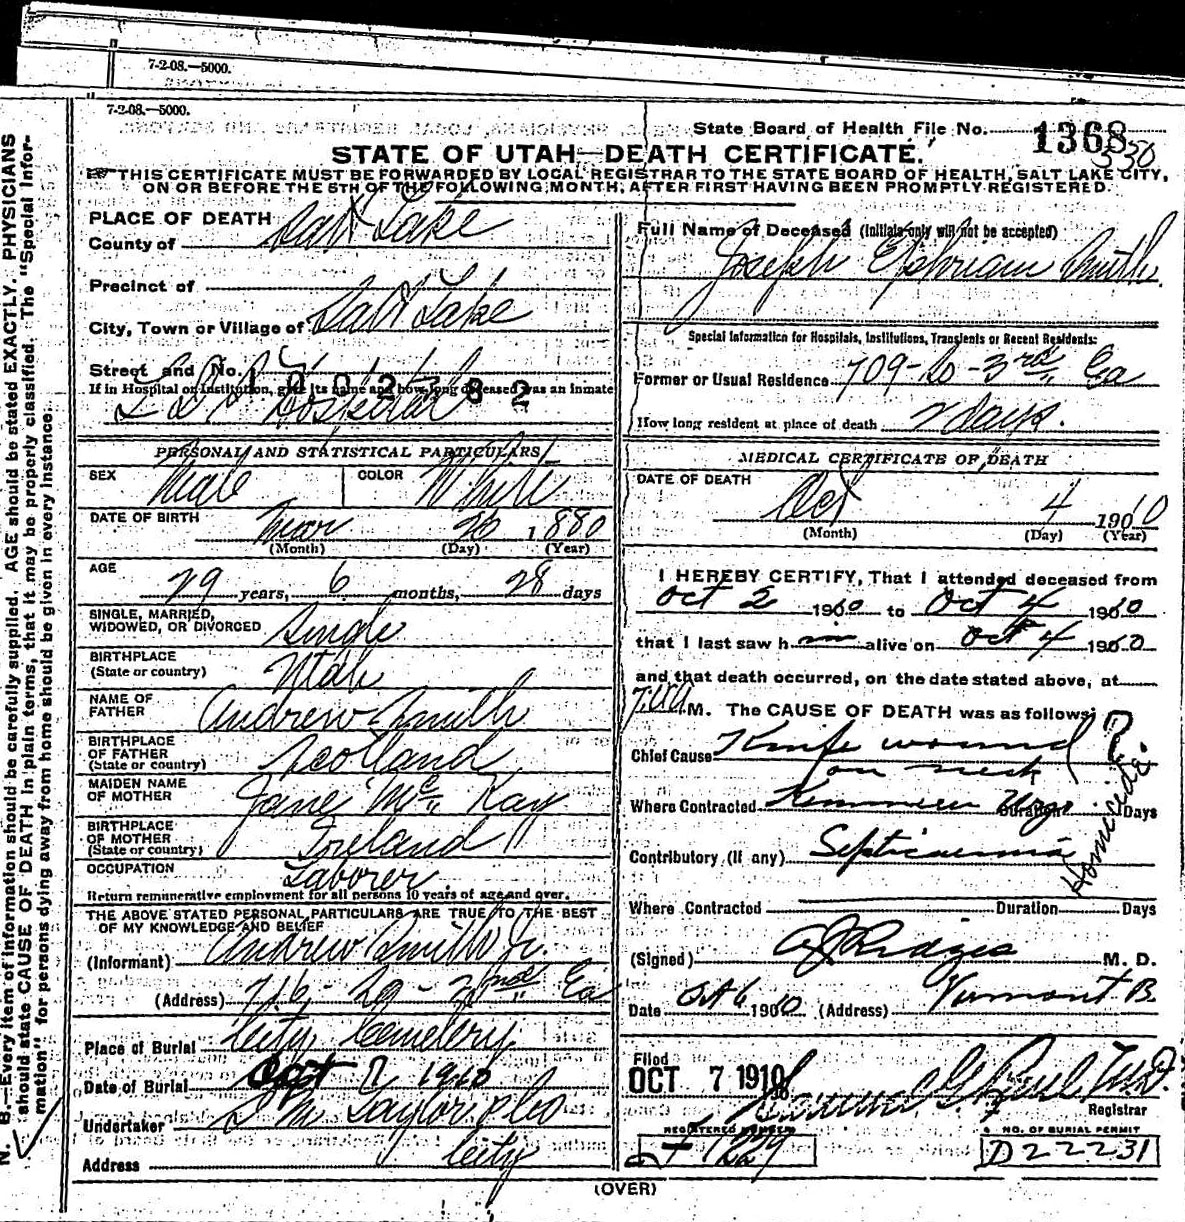 7-2-08.—5000.
7-2-08.—5000.
State Board of Health File No. 1368
350
STATE OF UTAH—DEATH CERTIFICATE.
THIS CERTIFICATE MUST BE FORWARDED BY LOCAL REGISTRAR TO THE STATE BOARD OF HEALTH, SALT LAKE CITY,
ON OR BEFORE THE 5TH OF THE FOLLOWING MONTH, AFTER FIRST HAVING BEEN PROMPTLY REGISTERED.
N. B.—Every item of information should be carefully supplied. AGE should be stated EXACTLY. PHYSICIANS
should state CAUSE OF DEATH in plain terms, that it may be properly classified. The "Special Infor-
mation" for persons dying away from home should be given in every instance.
PLACE OF DEATH
County of Salt Lake
Precinct of
City, Town or Village of Salt Lake
Street and No.
1002382
If in Hospital or Institution, give its name and how long deceased was an inmate
L D S Hospital
PERSONAL AND STATISTICAL PARTICULARS
SEX Male COLOR White
DATE OF BIRTH Mar 26 1880
(Month) (Day) (Year)
AGE 29 years, 6 months, 28 days
SINGLE, MARRIED,
WIDOWED, OR DIVORCED Single
BIRTHPLACE
(State or country) Utah
NAME OF
FATHER Andrew Smith
BIRTHPLACE
OF FATHER
(State or country) Scotland
MAIDEN NAME
OF MOTHER Jane McKay
BIRTHPLACE
OF MOTHER
(State or country) Ireland
OCCUPATION Laborer
Return remunerative employment for all persons 10 years of age and over.
THE ABOVE STATED PERSONAL PARTICULARS ARE TRUE TO THE BEST
OF MY KNOWLEDGE AND BELIEF
(Informant) Andrew Smith Jr.
(Address) 716 - So - 2nd Ea
Place of Burial City Cemetery
Date of Burial Oct 7 1910
Undertaker S M Taylor & Co
Address City
Full Name of Deceased (Initials only will not be accepted)
Joseph Ephriam Smith
Special Information for Hospitals, Institutions, Transients or Recent Residents:
Former or Usual Residence 709-So-3rd Ea
How long resident at place of death 2 days.
MEDICAL CERTIFICATE OF DEATH
DATE OF DEATH Oct 4 1910
(Month) (Day) (Year)
I HEREBY CERTIFY, That I attended deceased from
Oct 2 1910 to Oct 4 1910
that I last saw him alive on Oct 4 1910
and that death occurred, on the date stated above, at
M. The CAUSE OF DEATH was as follows:
Chief Cause Knife wound ?
on neck
Homicide.
Where Contracted Kemmerer Wyo. Duration Days
Contributory (if any) Septicaemia
Where Contracted Duration Days
(Signed) M. D.
Date Oct 6 1910 (Address) Vermont B.
Filed
OCT 7 1910
M.D.
Registrar
REGISTERED NUMBER
1229
NO. OF BURIAL PERMIT
D22231
(OVER)